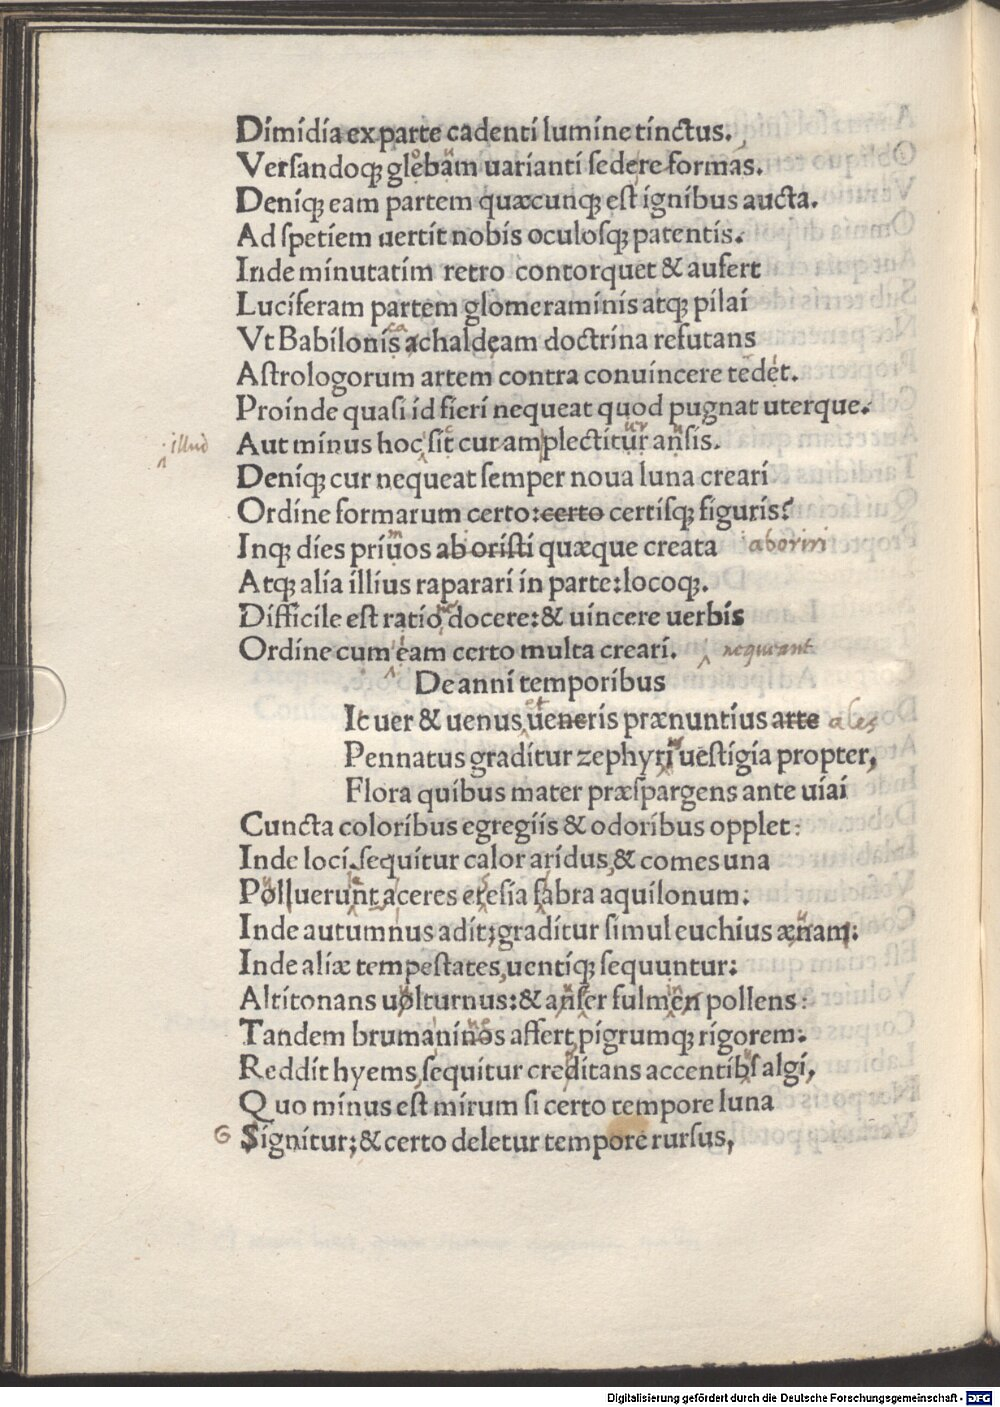 Dimidia ex parte cadenti lumine tinctus.
Versandoq; glebam uarianti sedere formas.
Deniq; eam partem quæcunq; est ignibus aucta.
Ad spetiem uertit nobis oculosq; patentis.
Inde minutatim retro contorquet & aufert
Luciferam partem glomeraminis atq; pilai
Vt Babilonis achaldeam doctrina refutans
Astrologorum artem contra conuincere tedet.
Proinde quasi id fieri nequeat quod pugnat uterque.
illud Aut minus hoc sit cur amplectitur ansis.
Deniq; cur nequeat semper noua luna creari
Ordine formarum certo: certo certisq; figuris?
Inq; dies priuos ab oristi quæque creata aboriri
Atq; alia illius raparari in parte: locoq;.
Difficile est ratio docere: & uincere uerbis
Ordine cum eam certo multa creari. nequeant
De anni temporibus
It uer & uenus ueneris prænuntius arte ales
Pennatus graditur zephyri uestigia propter,
Flora quibus mater præspargens ante uiai
Cuncta coloribus egregiis & odoribus opplet:
Inde loci sequitur calor aridus, & comes una
Polluerunt aceres etesia sabra aquilonum:
Inde autumnus adit; graditur simul euchius ænam:
Inde aliæ tempestates, uentiq; sequuntur:
Altitonans uolturnus: & anser fulmen pollens:
Tandem brumaninos affert, pigrumq; rigorem:
Reddit hyems, sequitur creditans accentibs algi,
Quo minus est mirum si certo tempore luna
G Signitur; & certo deletur tempore rursus,
Digitalisierung gefördert durch die Deutsche Forschungsgemeinschaft - DFG